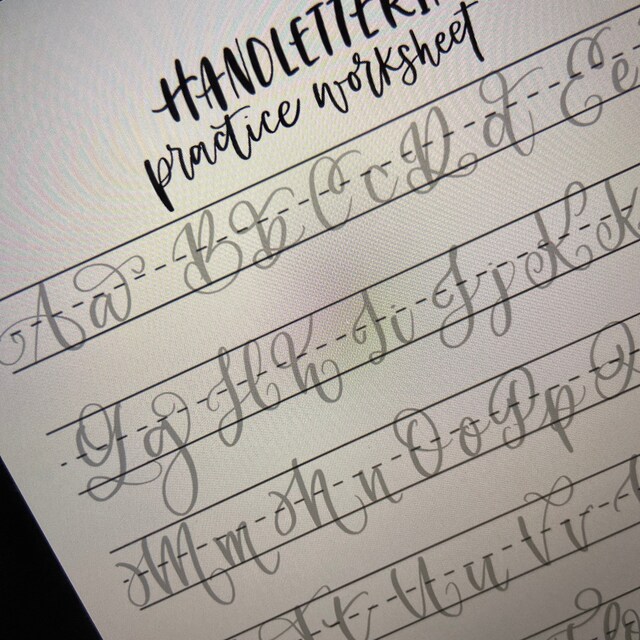 HANDLETTERI
practice worksheet
Aa Bb Cc Dd Ee
Gg Hh Ii Jj Kk
Mm Nn Oo Pp Q
Tt Uu Vv